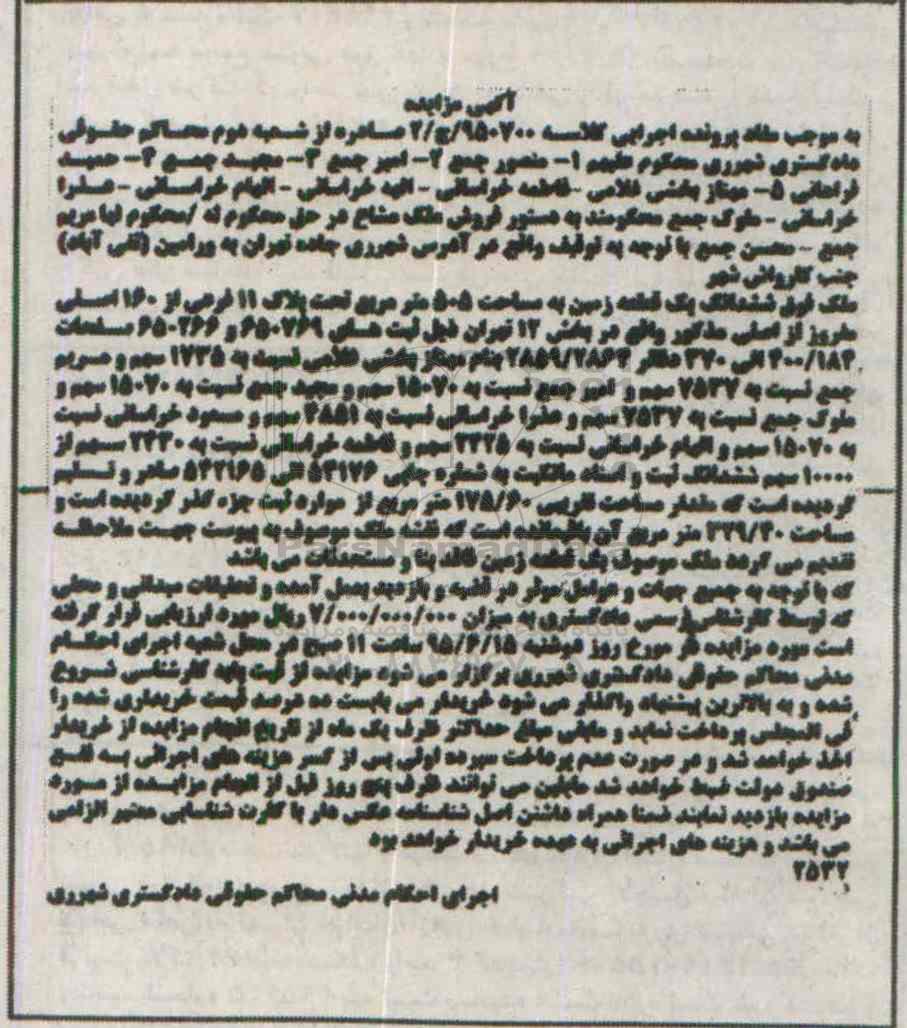 آگهی مزایده
به موجب مفاد پرونده اجرایی کلاسه ۹۵۰۷۰۰/ج/۲ صادره از شعبه دوم محاکم حقوقی
دادگستری شهرری محکوم علیهم ۱- منصور جمع ۲- امیر جمع ۳- مجید جمع ۴- حمید
فراهانی ۵- مهناز بخشی غلامی - فاطمه خراسانی - الهه خراسانی - الهام خراسانی - عذرا
خراسانی - ملوک جمع محکومند به دستور فروش ملک مشاع در حق محکوم له /محکوم لها مریم
جمع - محسن جمع با توجه به توقیف واقع در آدرس شهرری جاده تهران به ورامین (تقی آباد)
جنب کاروانی شهر
ملک فوق ششدانگ یک قطعه زمین به مساحت ۵۰۵ متر مربع تحت پلاک ۱۱ فرعی از ۱۶۰ اصلی
مفروز از اصلی مذکور واقع در بخش ۱۲ تهران ذیل ثبت های ۶۵۰۲۶۹ و ۶۵۰۲۶۶ صفحات
۴۰۰/۱۸۴ الی ۳۷۰ دفاتر ۲۸۵۹/۲۸۶۴ بنام مهناز بخشی غلامی نسبت به ۱۷۳۵ سهم و مریم
جمع نسبت به ۷۵۳۷ سهم و امیر جمع نسبت به ۱۵۰۷۰ سهم و مجید جمع نسبت به ۱۵۰۷۰ سهم و
ملوک جمع نسبت به ۷۵۳۷ سهم و عذرا خراسانی نسبت به ۴۸۵۱ سهم و مسعود خراسانی نسبت
به ۱۵۰۷۰ سهم و الهام خراسانی نسبت به ۲۴۲۵ سهم و فاطمه خراسانی نسبت به ۲۴۳۰ سهم از
۱۰۰۰۰۰ سهم ششدانگ ثبت و اسناد مالکیت به شماره چاپی ۵۴۱۷۶ الی ۵۴۲۱۶۵ صادر و تسلیم
گردیده است که مقدار مساحت تقریبی ۱۷۵/۶۰ متر مربع از موارد ثبت جزء گذر گردیده است و
مساحت ۳۲۹/۴۰ متر مربع آن باقیمانده است که نقشه ملک موصوف به پیوست جهت ملاحظه
تقدیم می گردد ملک موصوف یک قطعه زمین فاقد بنا و مستحدثات می باشد
که با توجه به جمیع جهات و عوامل موثر در قضیه و بازدید بعمل آمده و تحقیقات میدانی و محلی
که توسط کارشناس رسمی دادگستری به میزان ۷/۰۰۰/۰۰۰/۰۰۰ ریال مورد ارزیابی قرار گرفته
است مورد مزایده در مورخ روز دوشنبه ۹۵/۶/۱۵ ساعت ۱۱ صبح در محل شعبه اجرای احکام
مدنی محاکم حقوقی دادگستری شهرری برگزار می شود مزایده از قیمت پایه کارشناسی شروع
شده و به بالاترین پیشنهاد واگذار می شود خریدار می بایست ده درصد قیمت خریداری شده را
فی المجلس پرداخت نماید و مابقی مبلغ حداکثر ظرف یک ماه از تاریخ انجام مزایده از خریدار
اخذ خواهد شد و در صورت عدم پرداخت سپرده اولی پس از کسر هزینه های اجرائی به نفع
صندوق دولت ضبط خواهد شد مایلین می توانند ظرف پنج روز قبل از انجام مزایده از مورد
مزایده بازدید نمایند ضمنا همراه داشتن اصل شناسنامه عکس دار یا کارت شناسایی معتبر الزامی
می باشد و هزینه های اجرائی به عهده خریدار خواهد بود
۲۵۳۲
اجرای احکام مدنی محاکم حقوقی دادگستری شهرری